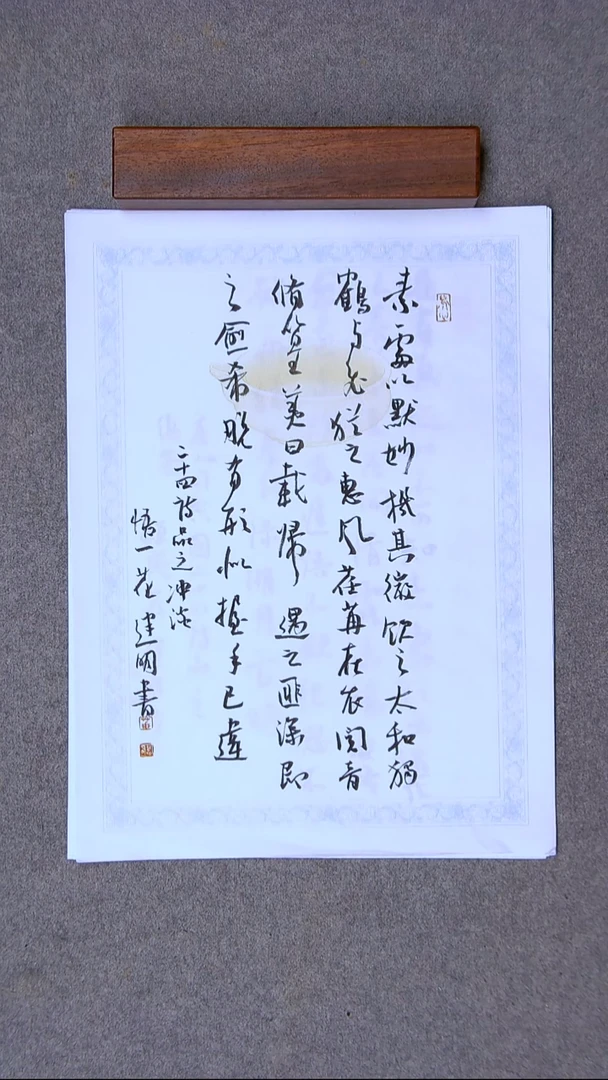 素處以默妙機其微飲之太和獨
鶴与飛猶之惠风荏苒在衣閱音
脩篁美曰載歸遇之匪深即
之愈希脱有形似握手已違
二十四詩品之冲淡
悟一花建明書